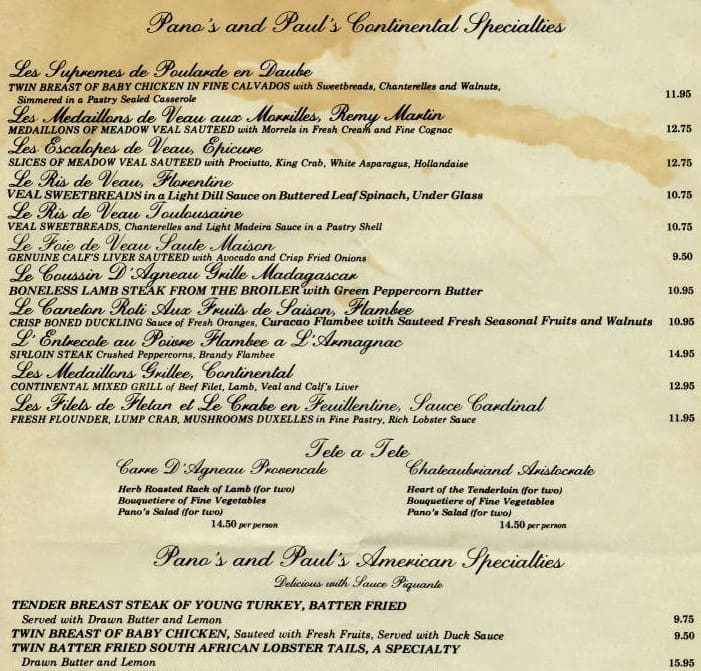 Pano's and Paul's Continental Specialties
Les Supremes de Poularde en Daube
TWIN BREAST OF BABY CHICKEN IN FINE CALVADOS with Sweetbreads, Chanterelles and Walnuts,
Simmered in a Pastry Sealed Casserole 11.95
Les Medaillons de Veau aux Morrilles, Remy Martin
MEDAILLONS OF MEADOW VEAL SAUTEED with Morrels in Fresh Cream and Fine Cognac 12.75
Les Escalopes de Veau, Epicure
SLICES OF MEADOW VEAL SAUTEED with Prociutto, King Crab, White Asparagus, Hollandaise 12.75
Le Ris de Veau, Florentine
VEAL SWEETBREADS in a Light Dill Sauce on Buttered Leaf Spinach, Under Glass 10.75
Le Ris de Veau Toulousaine
VEAL SWEETBREADS, Chanterelles and Light Madeira Sauce in a Pastry Shell 10.75
Le Foie de Veau Saute Maison
GENUINE CALF'S LIVER SAUTEED with Avocado and Crisp Fried Onions 9.50
Le Coussin D'Agneau Grille Madagascar
BONELESS LAMB STEAK FROM THE BROILER with Green Peppercorn Butter 10.95
Le Caneton Roti Aux Fruits de Saison, Flambee
CRISP BONED DUCKLING Sauce of Fresh Oranges, Curacao Flambee with Sauteed Fresh Seasonal Fruits and Walnuts 10.95
L'Entrecote au Poivre Flambee a L'Armagnac
SIRLOIN STEAK Crushed Peppercorns, Brandy Flambee 14.95
Les Medaillons Grillee, Continental
CONTINENTAL MIXED GRILL of Beef Filet, Lamb, Veal and Calf's Liver 12.95
Les Filets de Fletan et Le Crabe en Feuillentine, Sauce Cardinal
FRESH FLOUNDER, LUMP CRAB, MUSHROOMS DUXELLES in Fine Pastry, Rich Lobster Sauce 11.95
Tete a Tete
Carre D'Agneau Provencale
Herb Roasted Rack of Lamb (for two)
Bouquetiere of Fine Vegetables
Pano's Salad (for two)
14.50 per person
Chateaubriand Aristocrate
Heart of the Tenderloin (for two)
Bouquetiere of Fine Vegetables
Pano's Salad (for two)
14.50 per person
Pano's and Paul's American Specialties
Delicious with Sauce Piquante
TENDER BREAST STEAK OF YOUNG TURKEY, BATTER FRIED
Served with Drawn Butter and Lemon 9.75
TWIN BREAST OF BABY CHICKEN, Sauteed with Fresh Fruits, Served with Duck Sauce 9.50
TWIN BATTER FRIED SOUTH AFRICAN LOBSTER TAILS, A SPECIALTY
Drawn Butter and Lemon 15.95